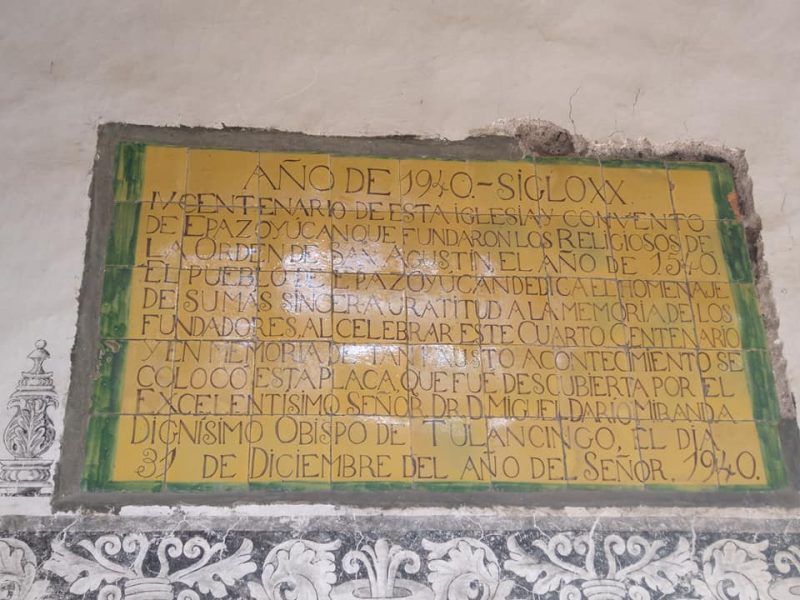 AÑO DE 1940.-SIGLO XX.
IV CENTENARIO DE ESTA IGLESIA Y CONVENTO
DE EPAZOYUCAN QUE FUNDARON LOS RELIGIOSOS DE
LA ORDEN DE SAN AGUSTÍN EL AÑO DE 1540.
EL PUEBLO DE EPAZOYUCAN DEDICA EL HOMENAJE
DE SU MÁS SINCERA GRATITUD A LA MEMORIA DE LOS
FUNDADORES, AL CELEBRAR ESTE CUARTO CENTENARIO
Y EN MEMORIA DE TAN FAUSTO ACONTECIMIENTO SE
COLOCÓ ESTA PLACA QUE FUE DESCUBIERTA POR EL
EXCELENTÍSIMO SEÑOR DR. D. MIGUEL DARÍO MIRANDA
DIGNÍSIMO OBISPO DE TULANCINGO, EL DIA
31 DE DICIEMBRE DEL AÑO DEL SEÑOR. 1940.